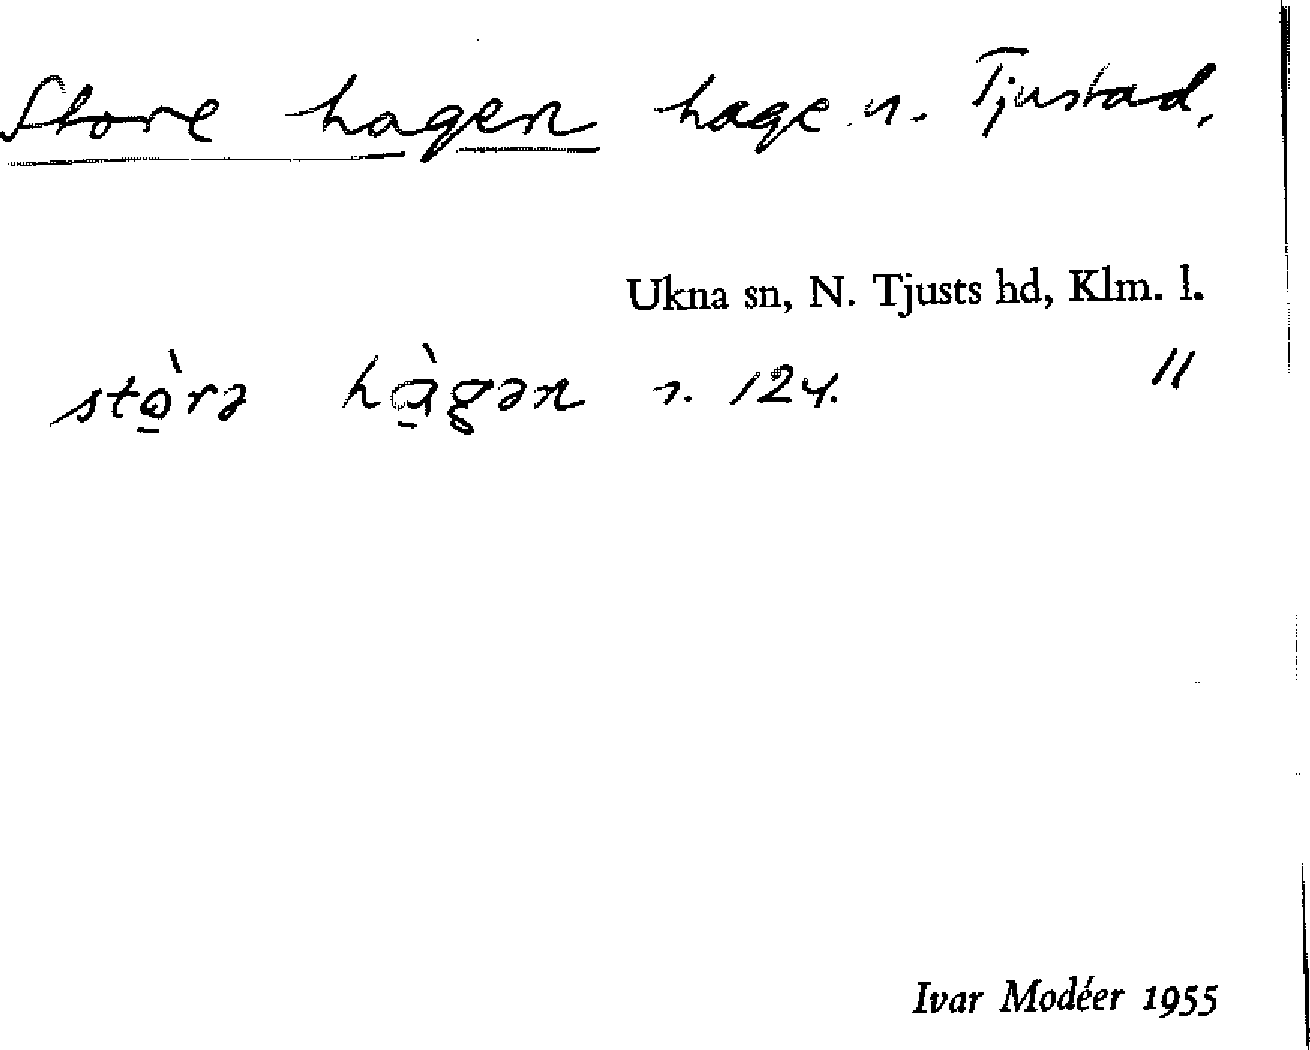 Store hagen hage n. Tjustad,
Ukna sn, N. Tjusts hd, Klm. l.
stò̠rə hà̠gən n. 124. "
Ivar Modéer 1955